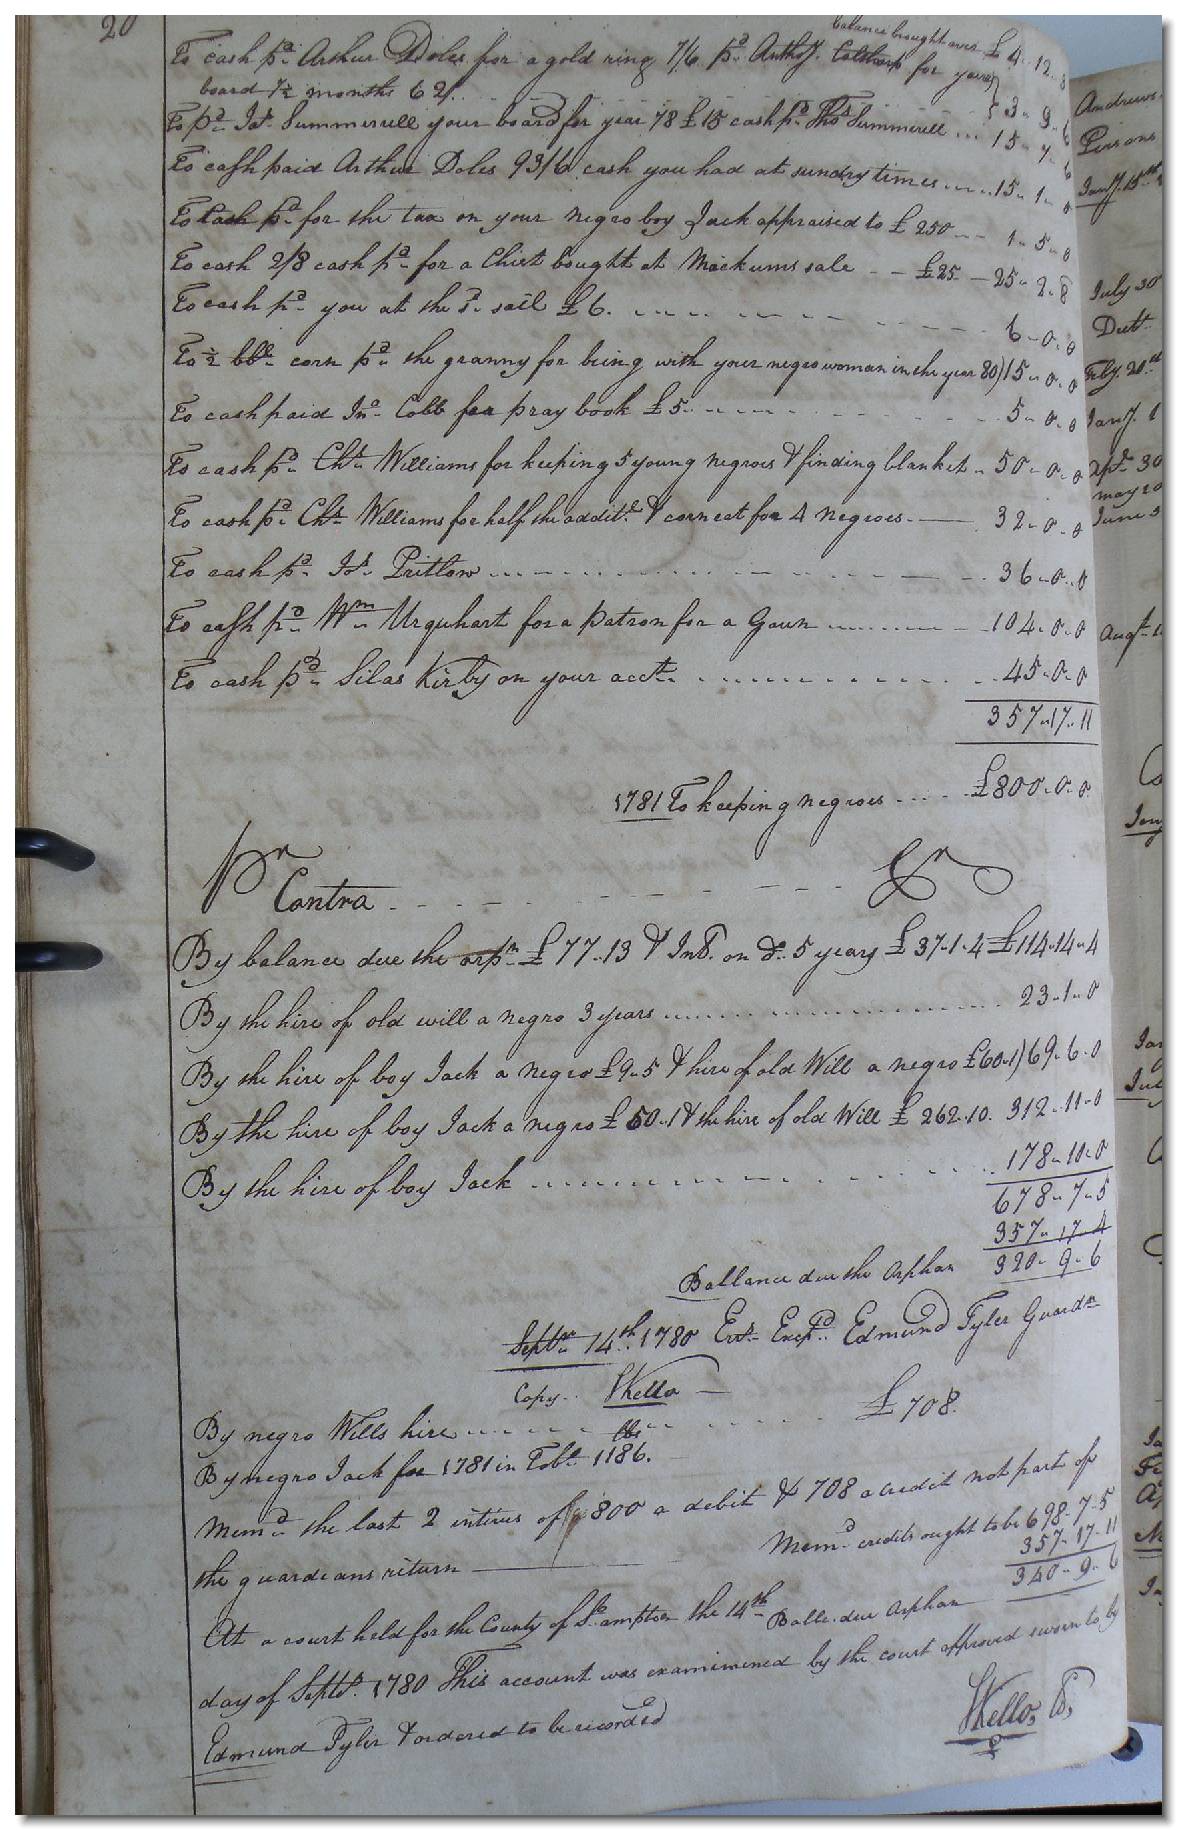 20
balance brought over £ 4.. 12.. 8
To cash pd. Arthur Doles for a gold ring 7/6 pd. Anthoy. for your
board 7½ months 62/ 3.. 9.. 6
To pd. Jos. Summerell your board for year 78 £15 cash pd. Thos Summerell ... 15.. 7.. 6
To cash paid Arthur Doles 93/6 cash you had at sundry times .... 15.. 1.. 0
To Cash pd. for the tax on your negro boy Jack appraised to £ 250 -- 1.. 5.. 0
To cash 2/8 cash pd. for a Chist bought at Mackums sale -- £25 -- 25.. 2.. 8
To cash pd. you at the sd. sail £ 6. 6 -- 0.. 0
To ½ bbl. corn pd. the granny for being with your negro woman in the year 80) 15.. 0.. 0
To cash paid Jno. Cobb for pray book £ 5 5.. 0.. 0
To cash pd. Chs. Williams for keeping 5 young negroes & finding blanket .. 50.. 0.. 0
To cash pd. Chs. Williams for half the addit. & corn eat for 4 negroes 32.. 0.. 0
To cash pd. Jos. Pritlow 36.. 0.. 0
To cash pd. Wm. Urquhart for a patron for a Goun 104.. 0.. 0
To cash pd. Silas Kirby on your acct. 45.. 0.. 0
357.. 17.. 11
1781 To keeping negroes £800.. 0.. 0
Pr Contra Cr
By balance due the orpn. £ 77.. 13 & Int. on do. 5 years £ 37.. 1.. 4 £114.. 14.. 4
By the hire of old will a negro 3 years 23.. 1.. 0
By the hire of boy Jack a negro £9.. 5 & hire of old Will a negro £60..1) 69.. 6.. 0
By the hire of boy Jack a negro £ 50.. 1 & the hire of old Will £ 262.. 10. 312.. 11.. 0
By the hire of boy Jack 178.. 10.. 0
678.. 7.. 5
357.. 17.. 4
Ballance due the Orphan 320.. 9.. 6
Septr. 14th. 1780 Ers. Excpd. Edmund Tyler Guardn
Copy.. SKello
By negro Wills hire £ 708.
lbs
By negro Jack for 1781 in Tobo. 1186.
Memd. the last 2 intires of 800 a debit & 708 a credit not part of
the guardians return
Memd. credits ought to be 698.. 7.. 5
357.. 17.. 11
Balle. due Orphan 340.. 9.. 6
At a court held for the County of So.ampton the 14th
day of Septr. 1780 This account was examimened by the court approved sworn to by
Edmund Tyler & ordered to be recorded
SKello, C,
Andrews
Persons
Jany. 15th
July 30
Dutt
Feby. 21st
Jany. 1
30
may 20
June 5
Augt.